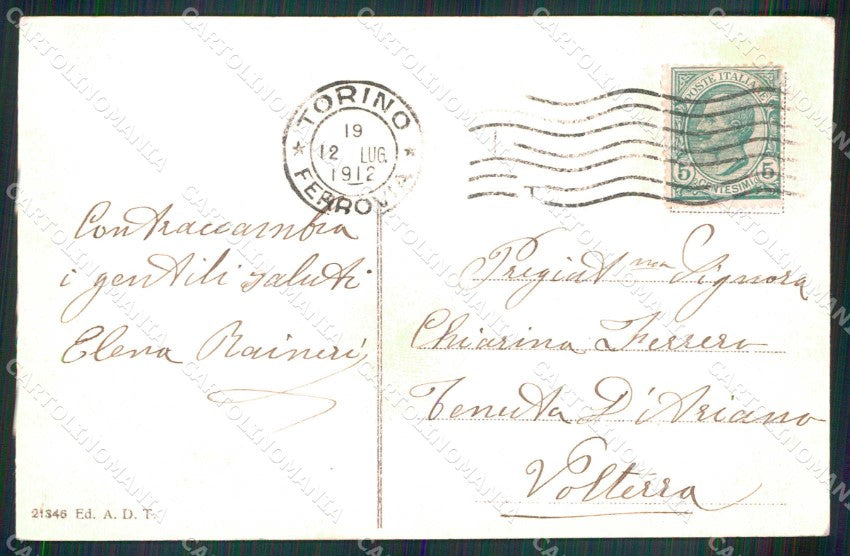 TORINO
19
12 LUG.
1912
FERROVIA
POSTE ITALIANE
5 5
CENTESIMI
Contraccambia
i gentili saluti
Elena Raineri
Pregiatma Signora
Chiarina Ferrero
Tenuta D'Ariano
Volterra
21346 Ed. A. D. T.
CARTOLINOMANIA